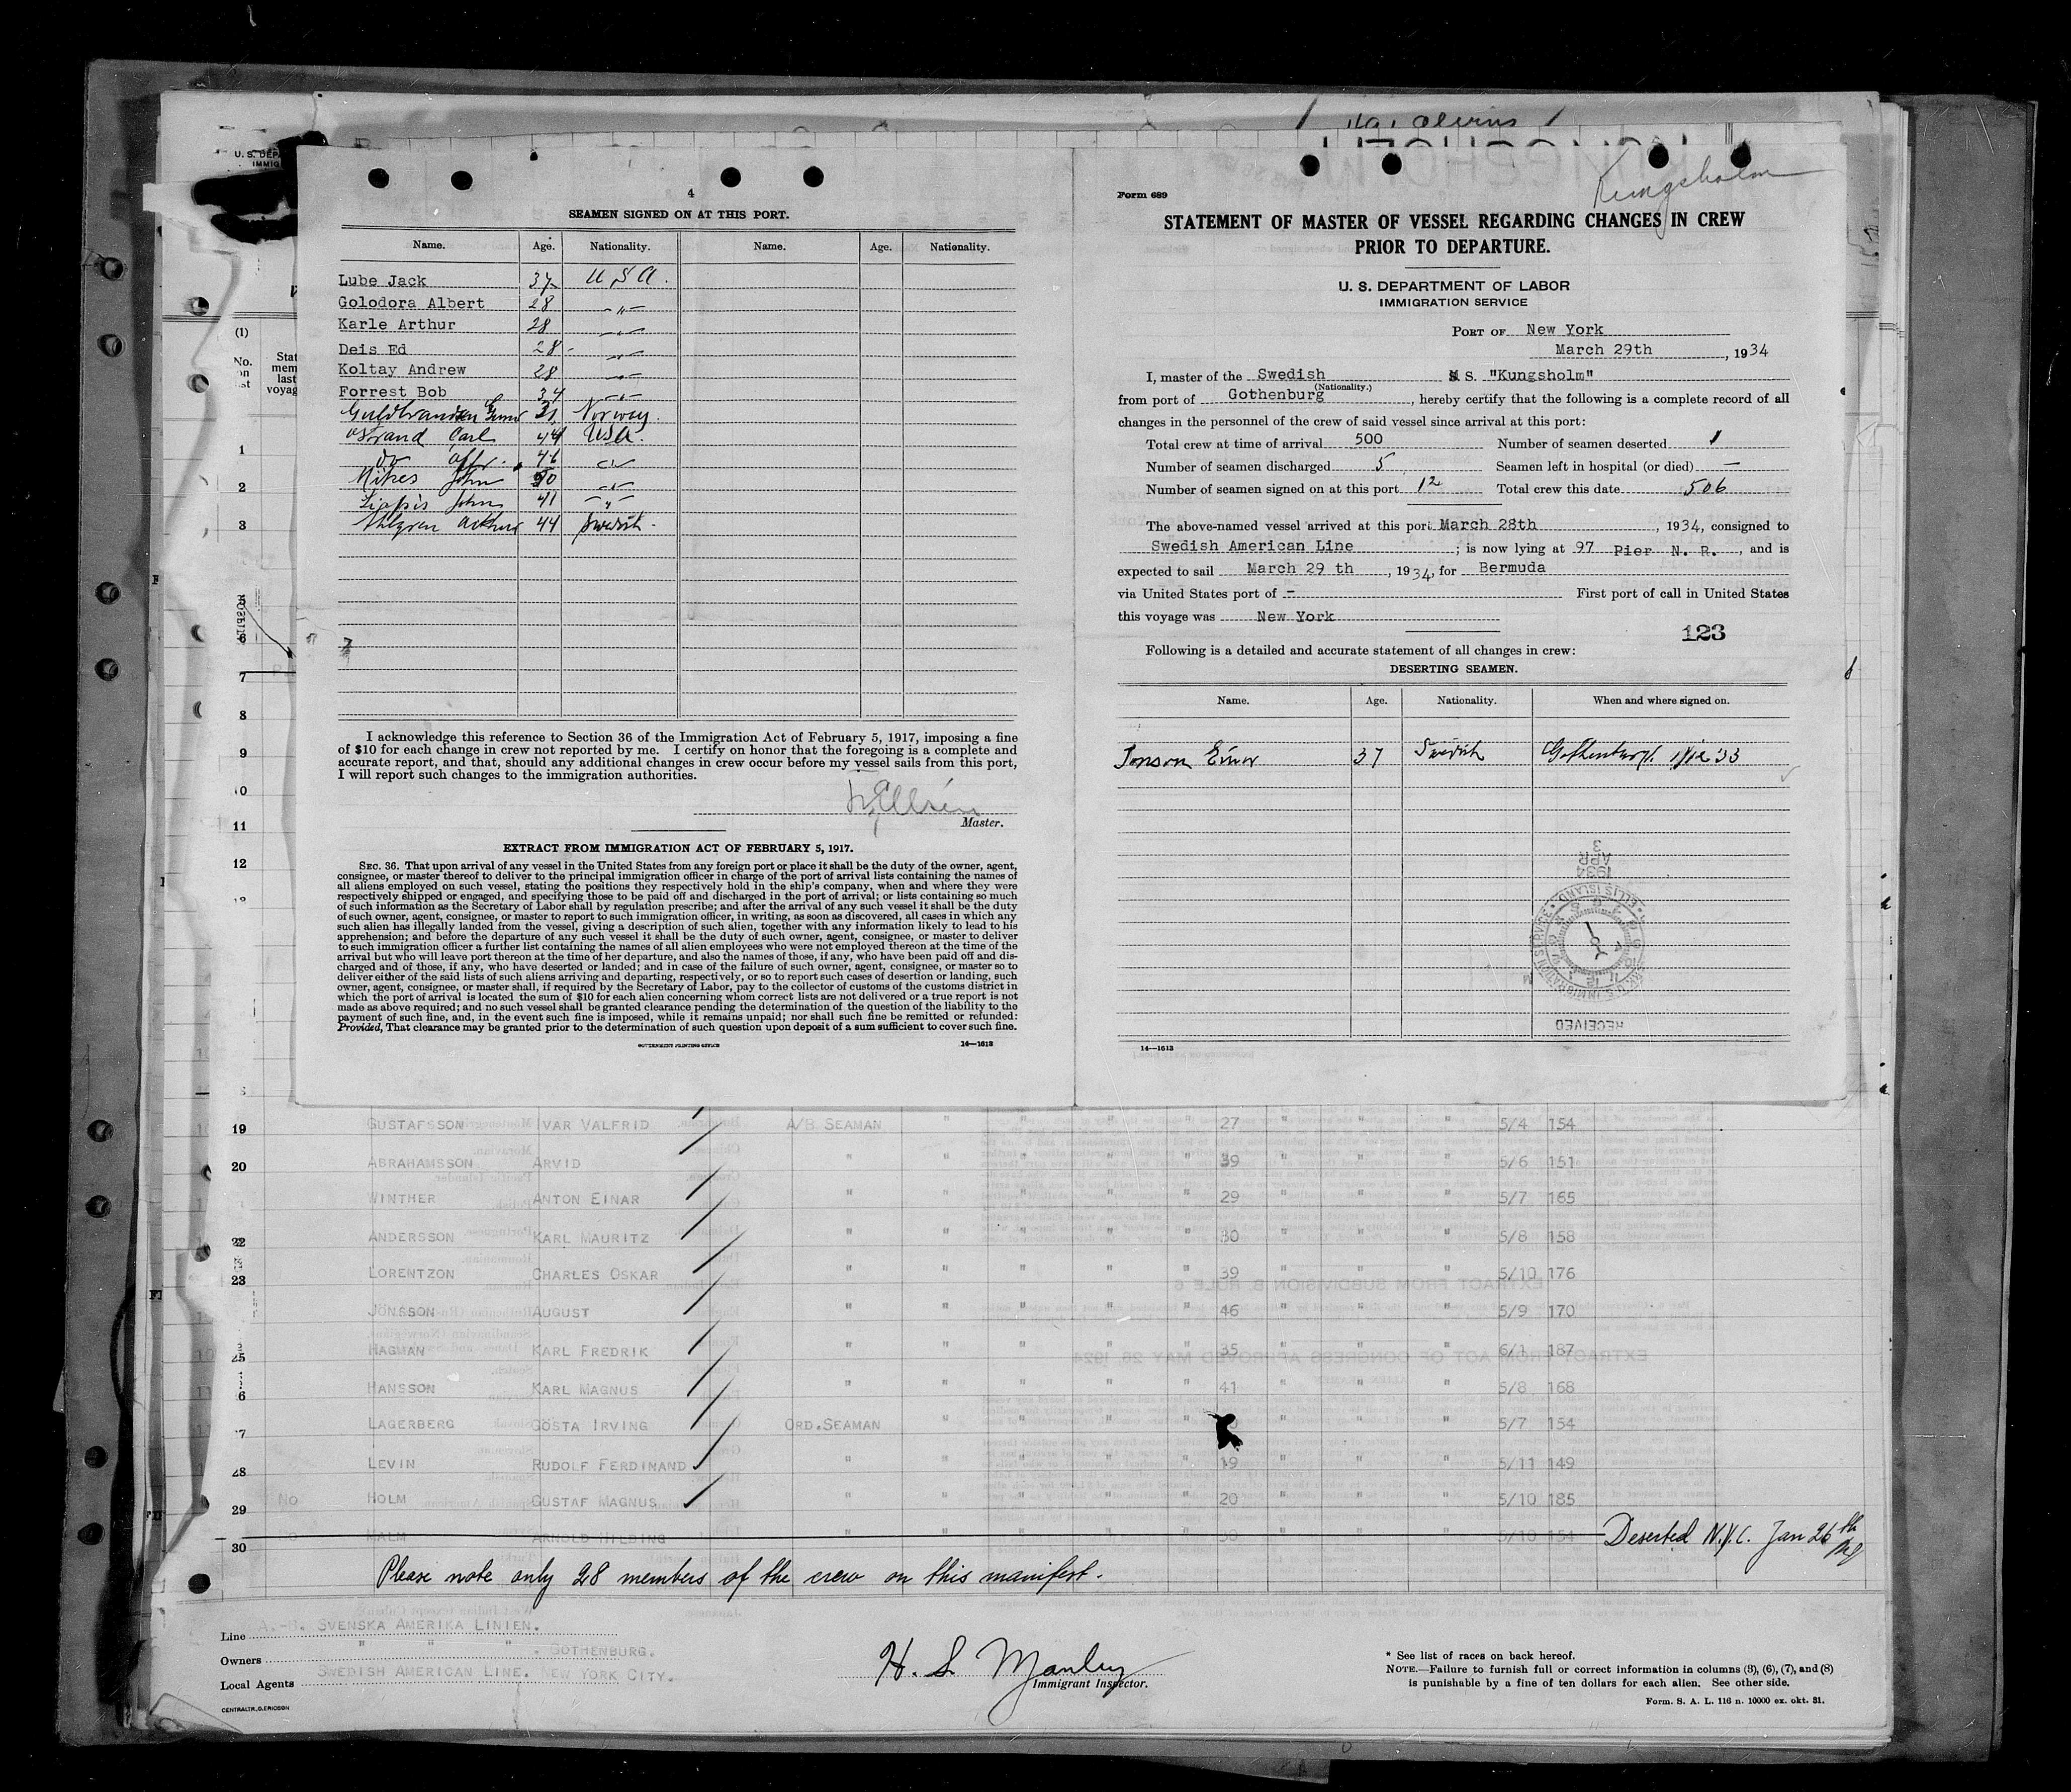 4
SEAMEN SIGNED ON AT THIS PORT.
Name. Age. Nationality. Name. Age. Nationality.
Lube Jack 37 U S A.
Golodora Albert 28 -"-
Karle Arthur 28 -"-
Deis Ed 28 - -"-
Koltay Andrew 28 -"-
Forrest Bob 34 -"-
31 Norway.
Ostrand Carl 44 USA.
46 -"-
John -"-
John 41 -"-
Ahlgren Arthur 44 Swedish.
I acknowledge this reference to Section 36 of the Immigration Act of February 5, 1917, imposing a fine
of $10 for each change in crew not reported by me. I certify on honor that the foregoing is a complete and
accurate report, and that, should any additional changes in crew occur before my vessel sails from this port,
I will report such changes to the immigration authorities.
Master.
EXTRACT FROM IMMIGRATION ACT OF FEBRUARY 5, 1917.
SEC. 36. That upon arrival of any vessel in the United States from any foreign port or place it shall be the duty of the owner, agent,
consignee, or master thereof to deliver to the principal immigration officer in charge of the port of arrival lists containing the names of
all aliens employed on such vessel, stating the positions they respectively hold in the ship's company, when and where they were
respectively shipped or engaged, and specifying those to be paid off and discharged in the port of arrival; or lists containing so much
of such information as the Secretary of Labor shall by regulation prescribe; and after the arrival of any such vessel it shall be the duty
of such owner, agent, consignee, or master to report to such immigration officer, in writing, as soon as discovered, all cases in which any
such alien has illegally landed from the vessel, giving a description of such alien, together with any information likely to lead to his
apprehension; and before the departure of any such vessel it shall be the duty of such owner, agent, consignee, or master to deliver
to such immigration officer a further list containing the names of all alien employees who were not employed thereon at the time of the
arrival but who will leave port thereon at the time of her departure, and also the names of those, if any, who have been paid off and dis-
charged and of those, if any, who have deserted or landed; and in case of the failure of such owner, agent, consignee, or master so to
deliver either of the said lists of such aliens arriving and departing, respectively, or so to report such cases of desertion or landing, such
owner, agent, consignee, or master shall, if required by the Secretary of Labor, pay to the collector of customs of the customs district in
which the port of arrival is located the sum of $10 for each alien concerning whom correct lists are not delivered or a true report is not
made as above required; and no such vessel shall be granted clearance pending the determination of the question of the liability to the
payment of such fine, and, in the event such fine is imposed, while it remains unpaid; nor shall such fine be remitted or refunded:
Provided, That clearance may be granted prior to the determination of such question upon deposit of a sum sufficient to cover such fine.
GOVERNMENT PRINTING OFFICE 14—1613
Kungsholm
Form 689
STATEMENT OF MASTER OF VESSEL REGARDING CHANGES IN CREW
PRIOR TO DEPARTURE.
U. S. DEPARTMENT OF LABOR
IMMIGRATION SERVICE
PORT OF New York
March 29th, 1934
I, master of the Swedish M S. "Kungsholm"
(Nationality.)
from port of Gothenburg, hereby certify that the following is a complete record of all
changes in the personnel of the crew of said vessel since arrival at this port:
Total crew at time of arrival 500 Number of seamen deserted 1
Number of seamen discharged 5 Seamen left in hospital (or died) —
Number of seamen signed on at this port 12 Total crew this date 506
The above-named vessel arrived at this port March 28th, 1934, consigned to
Swedish American Line; is now lying at 97 Pier N. R., and is
expected to sail March 29 th, 1934, for Bermuda
via United States port of - First port of call in United States
this voyage was New York
123
Following is a detailed and accurate statement of all changes in crew:
DESERTING SEAMEN.
Name. Age. Nationality. When and where signed on.
Jonson Einar 37 Swedish Gothenburg
1934
APR
3
ELLIS ISLAND
RECEIVED
14—1613
U. S. DEP
IMMIG
(1)
No.
on
Stat
mem
last
voyag
1
2
3
7
8
9
11
12
19 GUSTAFSSON IVAR VALFRID A/B SEAMAN " " " " 27 " " " 5/4 154
20 ABRAHAMSSON ARVID " " " " " 39 " " " 5/6 151
WINTHER ANTON EINAR " " " " " 29 " " " 5/7 165
22 ANDERSSON KARL MAURITZ " " " " " 30 " " " 5/8 158
23 LORENTZON CHARLES OSKAR " " " " " 39 " " " 5/10 176
JÖNSSON AUGUST " " " " " 46 " " " 5/9 170
25 HAGMAN KARL FREDRIK " " " " " 35 " " " 6/1 187
6 HANSSON KARL MAGNUS " " " " " 41 " " " 5/8 168
7 LAGERBERG GÖSTA IRVING ORD.SEAMAN " " " " " " " 5/7 154
28 LEVIN RUDOLF FERDINAND " " " " " 19 " " " 5/11 149
29 No HOLM GUSTAF MAGNUS " " " " " 20 " " " 5/10 185
30 MALM ARNOLD HILDING " " " " " 30 " " " 5/10 154 Deserted N.Y.C. Jan 26th
Please note only 28 members of the crew on this manifest.
Line A.-B. SVENSKA AMERIKA LINIEN.
Owners " " " . GOTHENBURG.
Local Agents SWEDISH AMERICAN LINE. NEW YORK CITY.
CENTRALTR., G. ERICSON
H. S. Manley
Immigrant Inspector.
* See list of races on back hereof.
NOTE.—Failure to furnish full or correct information in columns (3), (6), (7), and (8)
is punishable by a fine of ten dollars for each alien. See other side.
Form. S. A. L. 116 n. 10000 ex. okt. 31.